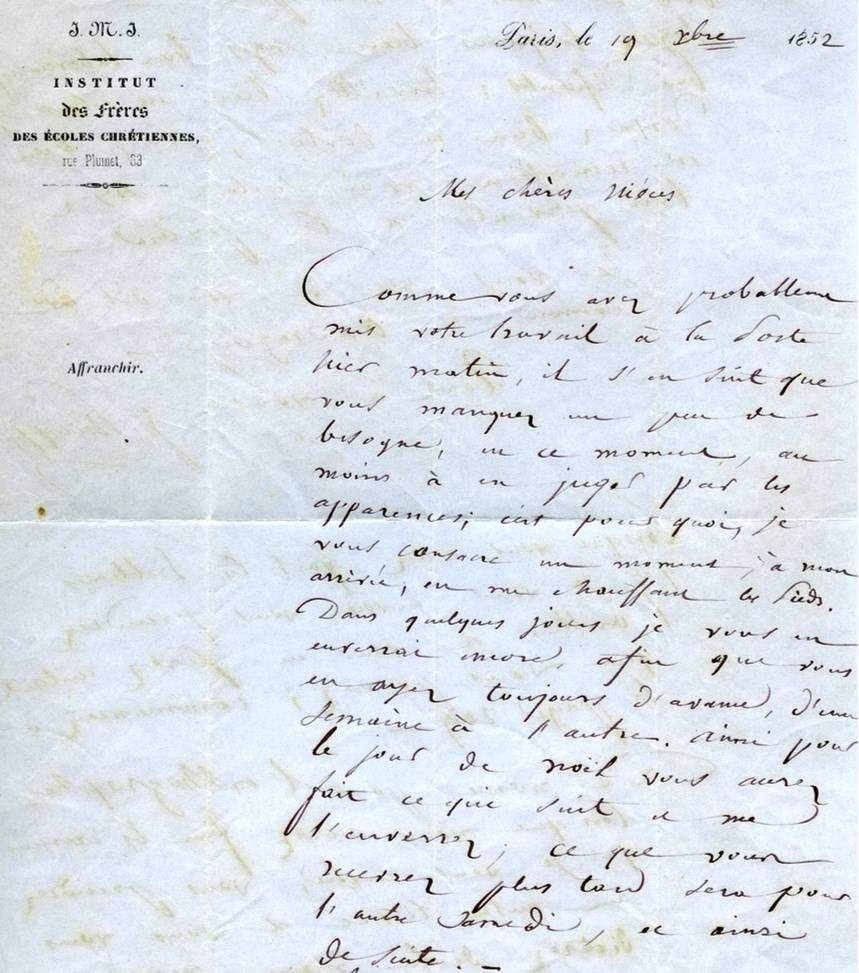 J. M. J.
INSTITUT
des Frères
DES ÉCOLES CHRÉTIENNES,
rue Plumet, 33
Affranchir.
Paris, le 19 Xbre 1852
Mes chères nièces
Comme vous avez probablement
mis votre travail à la Poste
hier matin, il s'en suit que
vous manquez un peu de
besogne, en ce moment, au
moins à en juger par les
apparences; c'est pourquoi, je
vous consacre un moment, à mon
arrivée, en me chauffant les Pieds.
Dans quelques jours je vous en
enverrai encore, afin que vous
en ayez toujours d'avance, d'une
semaine à l'autre. ainsi pour
le jour de noël vous aurez
fait ce qui suit et me
l'enverrez; ce que vous
recevrez plus tard sera pour
l'autre Samedi, et ainsi
de suite. —